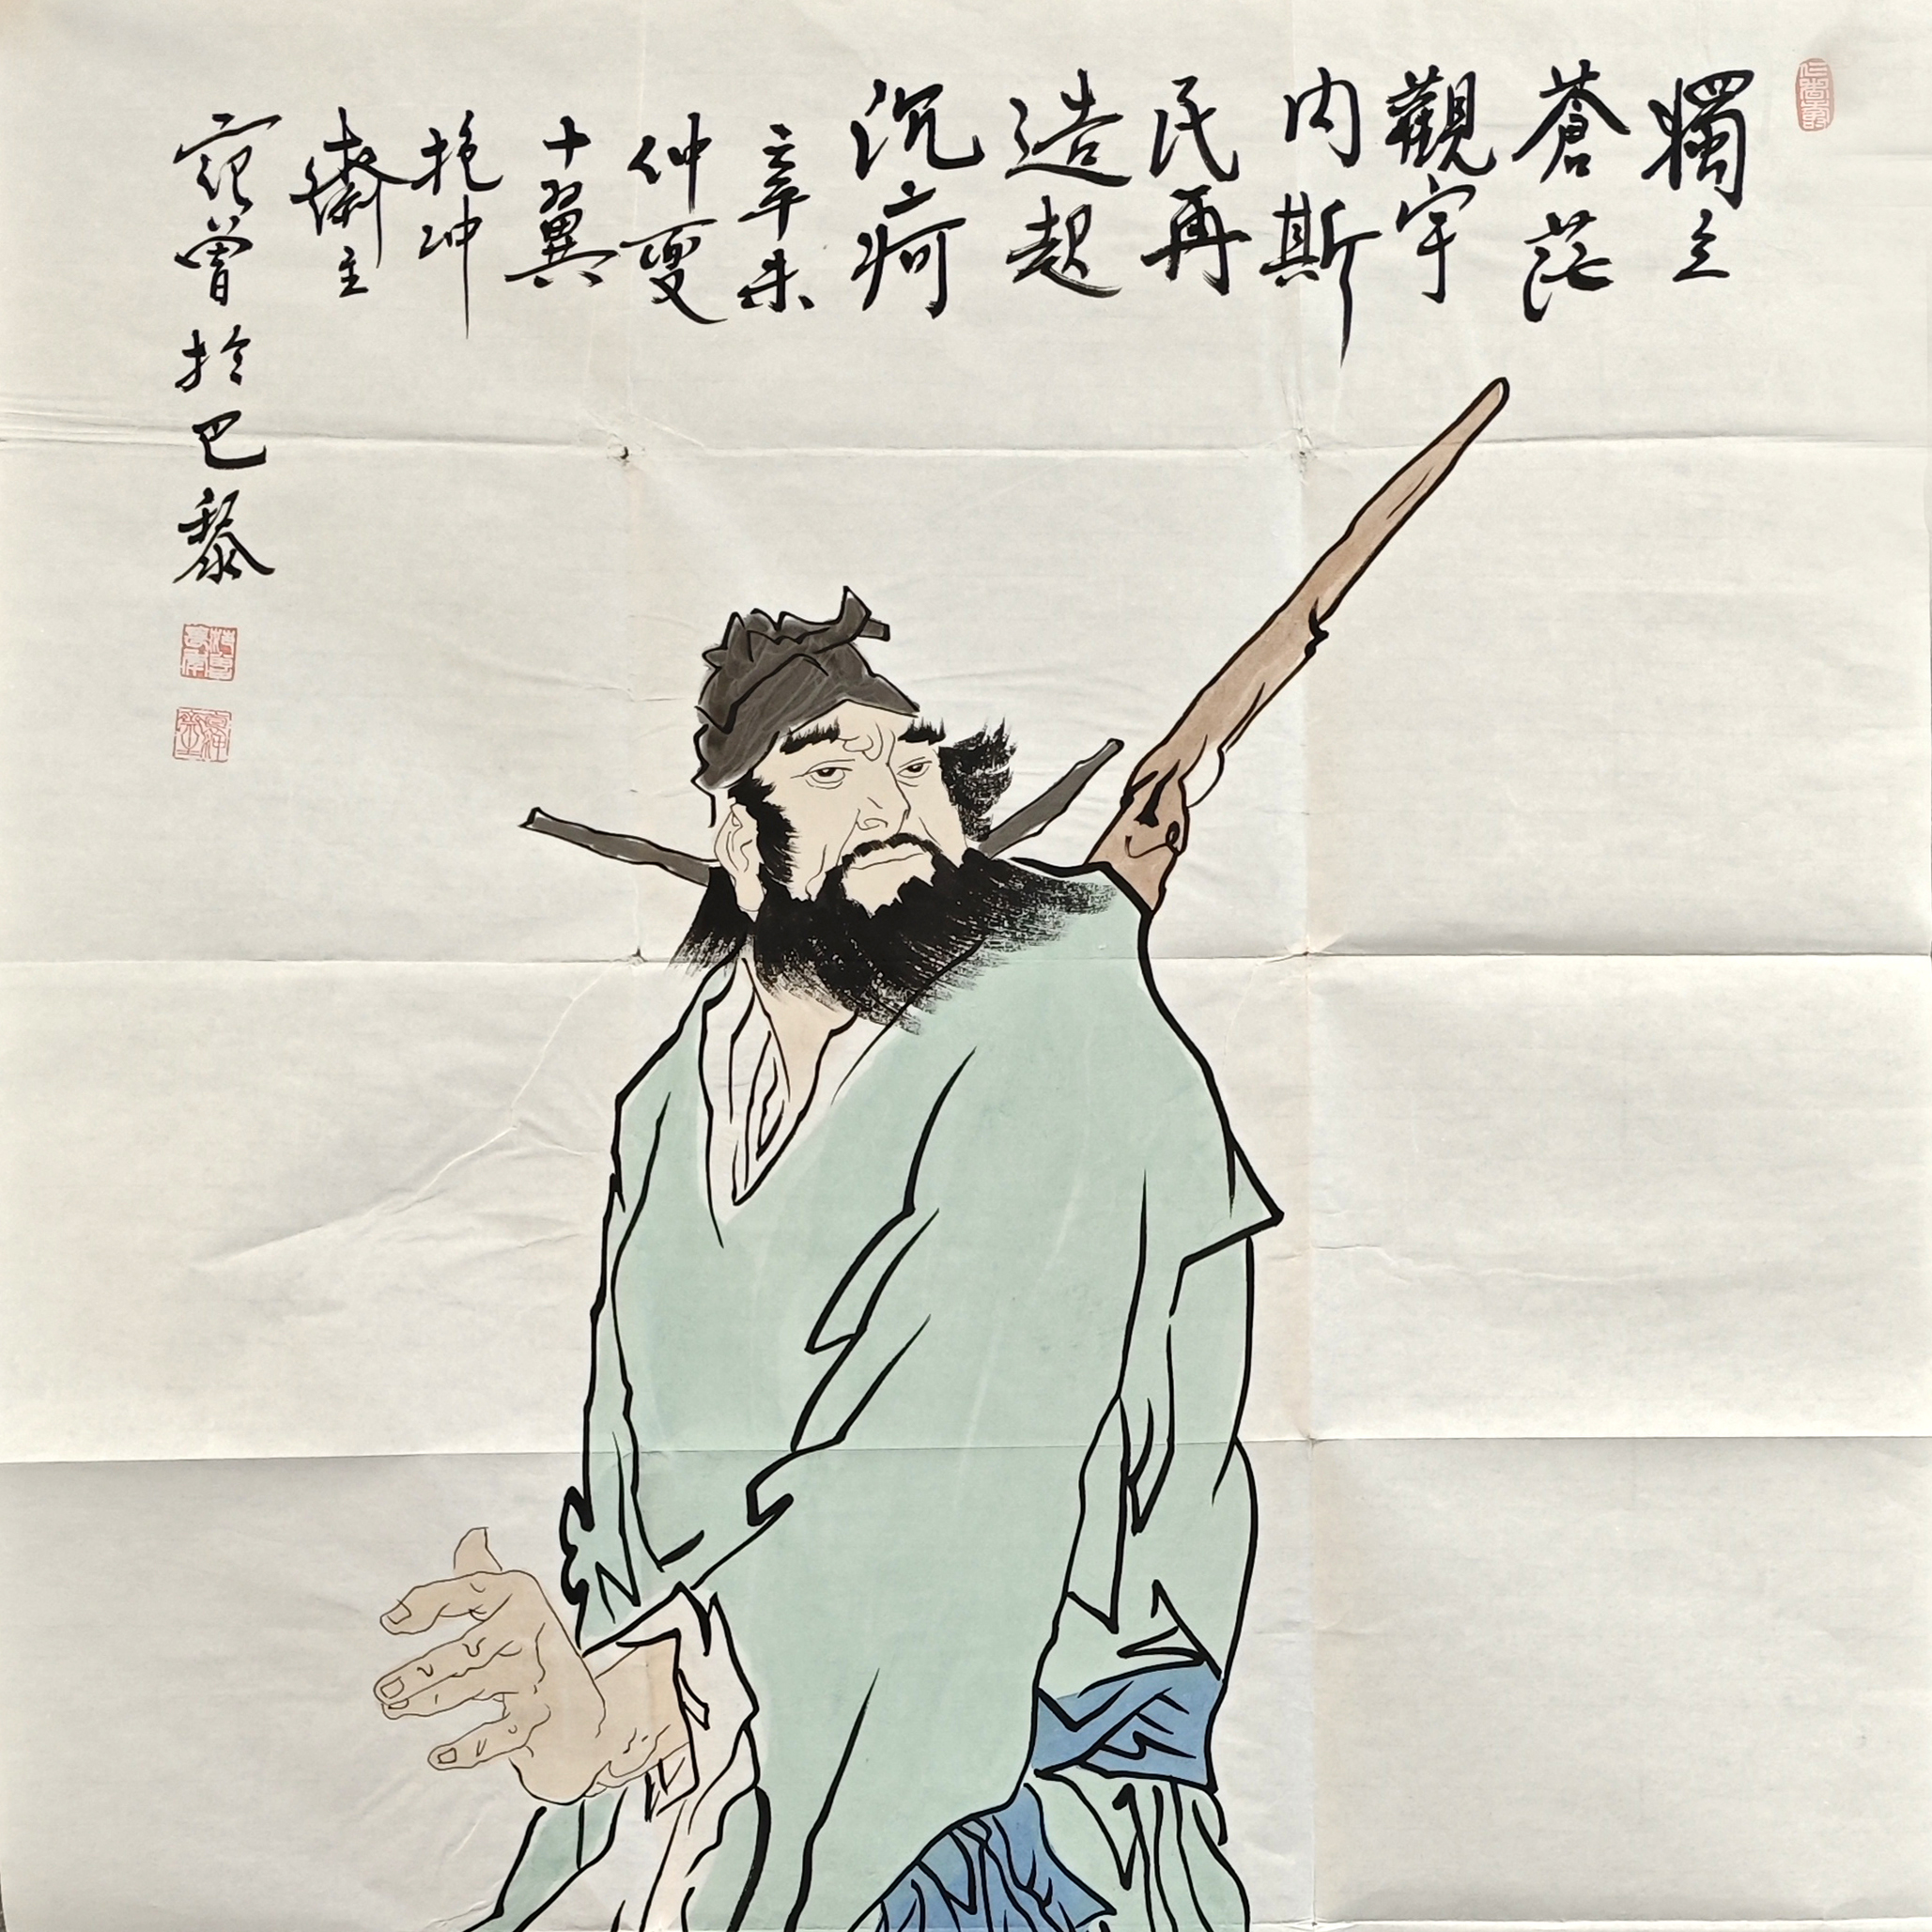 獨立
蒼茫
觀宇
内斯
民再
造起
沉疴
辛未
仲夏
十翼
抱冲
齋主
范曾於巴黎